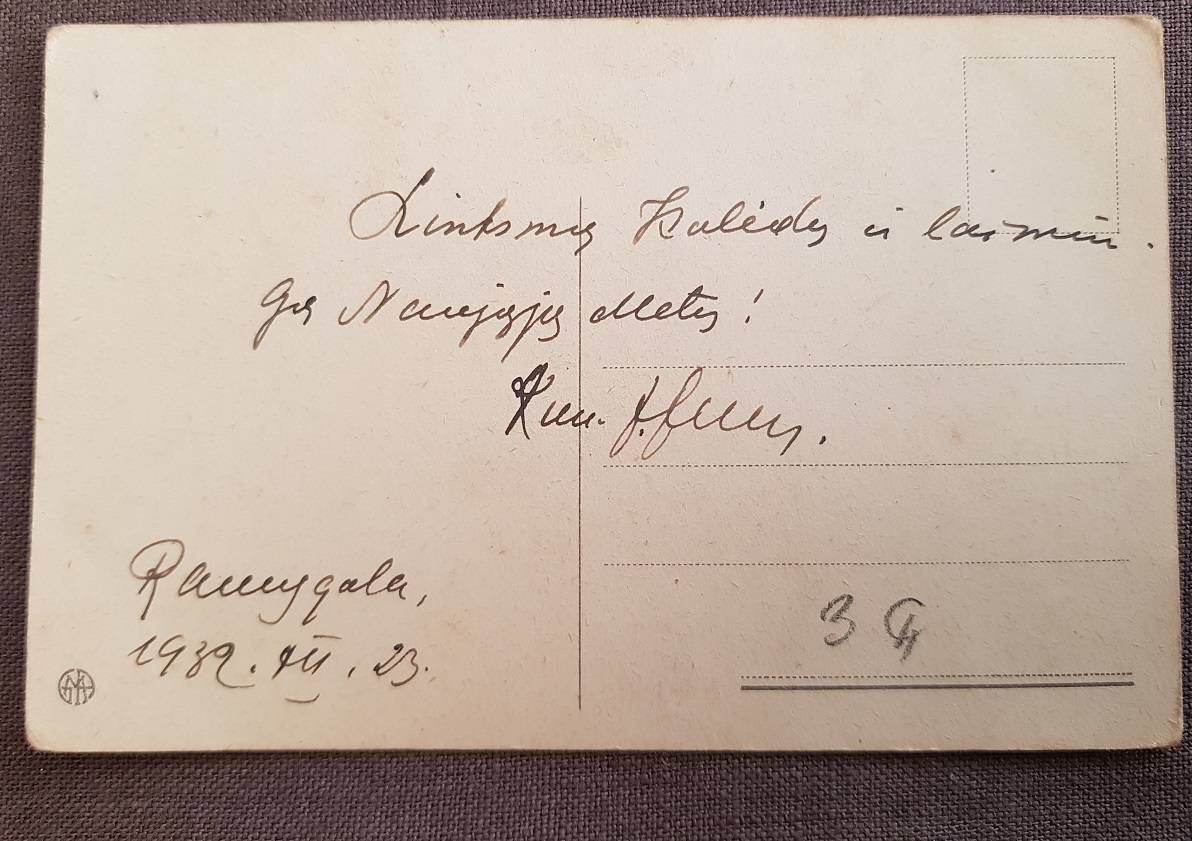 Linksmų Kalėdų ir laimin-
gų Naujųjų Metų!
Kun. J.
Ramygala,
1932. XII. 23.
3